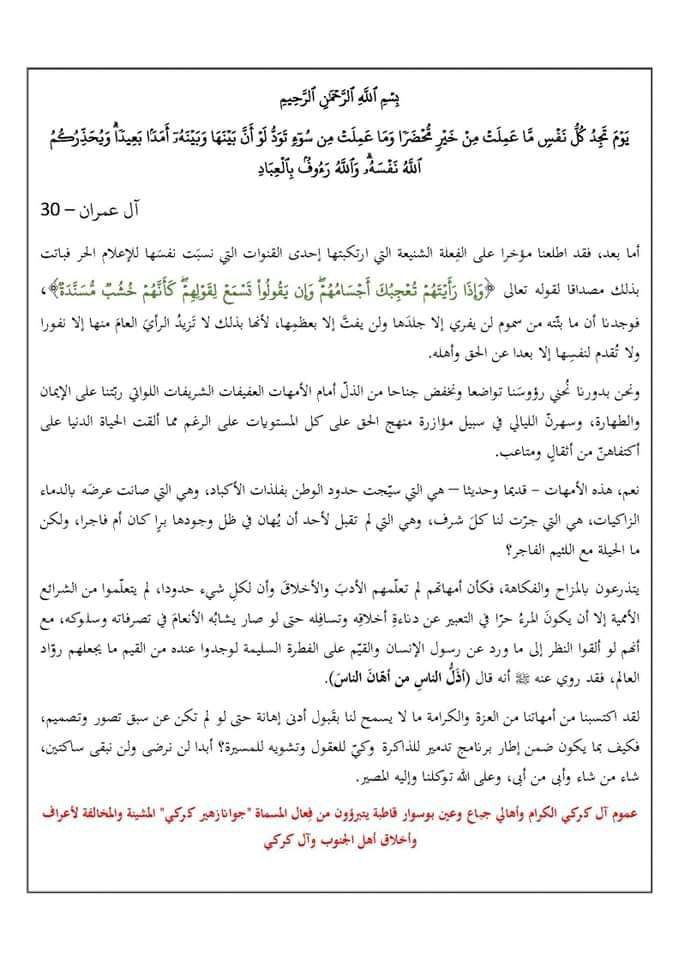 بِسْمِ ٱللَّهِ ٱلرَّحْمَٰنِ ٱلرَّحِيمِ
يَوْمَ تَجِدُ كُلُّ نَفْسٍ مَّا عَمِلَتْ مِنْ خَيْرٍ مُّحْضَرًا وَمَا عَمِلَتْ مِن سُوٓءٍ تَوَدُّ لَوْ أَنَّ بَيْنَهَا وَبَيْنَهُۥٓ أَمَدًۢا بَعِيدًاۗ وَيُحَذِّرُكُمُ
ٱللَّهُ نَفْسَهُۥۗ وَٱللَّهُ رَءُوفٌۢ بِٱلْعِبَادِ
آل عمران – 30
أما بعد، فقد اطلعنا مؤخرا على الفِعلة الشنيعة التي ارتكبتها إحدى القنوات التي نسبَت نفسَها للإعلام الحر فباتت
بذلك مصداقا لقوله تعالى ﴿وَإِذَا رَأَيْتَهُمْ تُعْجِبُكَ أَجْسَامُهُمْۖ وَإِن يَقُولُوا۟ تَسْمَعْ لِقَوْلِهِمْۖ كَأَنَّهُمْ خُشُبٌ مُّسَنَّدَةٌۖ﴾،
فوجدنا أن ما بثّته من سموم لن يفري إلا جلدَها ولن يفتّ إلا بعظمِها، لأنها بذلك لا تَزيدُ الرأيَ العامَ منها إلا نفورا
ولا تُقدم لنفسِها إلا بعدا عن الحق وأهله.
ونحن بدورنا نُحني رؤوسَنا تواضعا ونخفض جناحا من الذلّ أمام الأمهات العفيفات الشريفات اللواتي ربّتنا على الإيمان
والطهارة، وسهرنّ الليالي في سبيل مؤازرة منهج الحق على كل المستويات على الرغم مما ألقت الحياة الدنيا على
أكتفاهنّ من أثقالٍ ومتاعب.
نعم، هذه الأمهات - قديما وحديثا – هي التي سيّجت حدود الوطن بفلذات الأكباد، وهي التي صانت عرضَه بالدماء
الزاكيات، هي التي جرّت لنا كلَ شرف، وهي التي لم تقبل لأحد أن يُهان في ظل وجودها برٍا كان أم فاجرا، ولكن
ما الحيلة مع اللئيم الفاجر؟
يتذرعون بالمزاح والفكاهة، فكأن أمهاتهم لم تعلّمهم الأدبَ والأخلاقَ وأن لكلِ شيء حدودا، لم يتعلّموا من الشرائع
الأممية إلا أن يكونَ المرءُ حرّا في التعبير عن دناءةِ أخلاقِه وتسافِله حتى لو صار يشابُه الأنعامَ في تصرفاته وسلوكه، مع
أنهم لو ألقوا النظر إلى ما ورد عن رسول الإنسان والقيّم على الفطرة السليمة لوجدوا عنده من القيم ما يجعلهم روّاد
العالم، فقد روي عنه ﷺ أنه قال (أذَلُّ الناسِ من أهَانَ الناسَ).
لقد اكتسبنا من أمهاتنا من العزة والكرامة ما لا يسمح لنا بقَبول أدنى إهانة حتى لو لم تكن عن سبق تصور وتصميم،
فكيف بما يكون ضمن إطار برنامج تدمير للذاكرة وكيّ للعقول وتشويه للمسيرة؟ أبدا لن نرضى ولن نبقى ساكتين،
شاء من شاء وأبى من أبى، وعلى الله توكلنا وإليه المصير.
عموم آل كركي الكرام وأهالي جباع وعين بوسوار قاطبة يتبرؤون من فِعال المسماة "جوانازهير كركي" المشينة والمخالفة لأعراف
وأخلاق أهل الجنوب وآل كركي